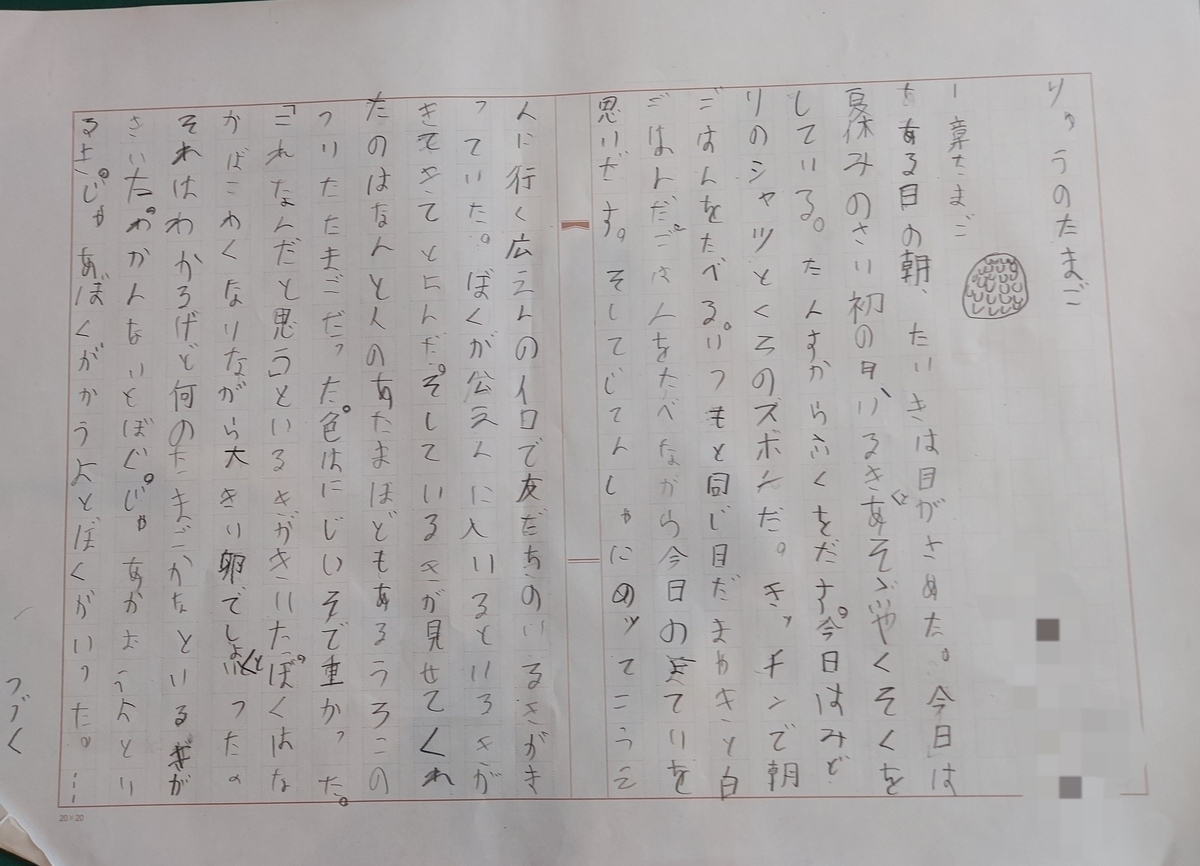 りゅうのたまご
一章たまご
ある日の朝、たいきは目がさめた。今日は
夏休みのさい初の日、いるきとあそぶやくそくを
している。たんすからふくをだす。今日はみど
りのシャツとくろのズボンだ。キッチンで朝
ごはんをたべる。いつもと同じ目だまやきと白
ごはんだ。ごはんをたべながら今日の予ていを
思いだす。そしてじてんしゃにのッてこうえ
んに行く広えんのイロで友だちのいるきがき
っていた。ぼくが公えんに入いるといろきが
きてきてとよんだ。そしているきが見せてくれ
たのはなんと人のあたまほどもあるうろこの
ついたたまごだった。色はにじいそで重かった。
「これなんだと思う」といるきがきいたぼくはな
かばこわくなりながら大きい卵でしょといった。
それはわかるけど何のたまごかなといるきが
きいた。わかんないとぼく。じゃあかおうよとい
るき。じゃあぼくがかうよとぼくがいった。…
つづく
20×20